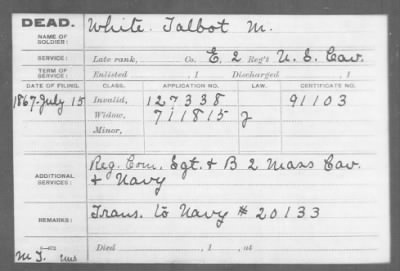 DEAD.
NAME OF SOLDIER:
White, Talbot M.
SERVICE:
Late rank, Co. E. 2 Reg't U. S. Cav.
TERM OF SERVICE:
Enlisted , 1 Discharged , 1
DATE OF FILING. CLASS. APPLICATION NO. LAW. CERTIFICATE NO.
1867-July 15 Invalid, 127338 91103
Widow, 711815
Minor,
ADDITIONAL SERVICES:
Reg. Com. Sgt. & B 2 Mass Cav.
& Navy
REMARKS:
Trans. to Navy # 20133
Died , 1 , at